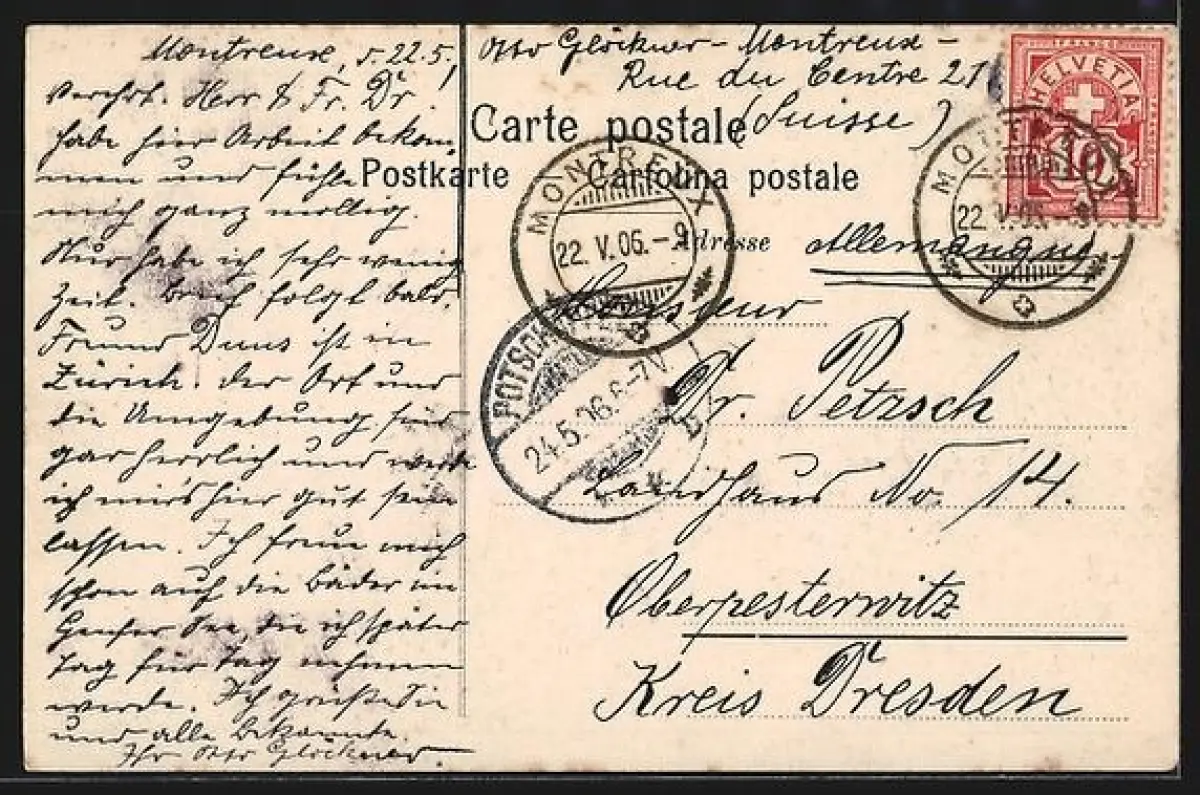 Montreux, d. 22.5.
Verehrt. Herr & Fr. Dr.
habe hier Arbeit bekom-
men und fühle
mich ganz mollig.
Nur habe ich sehr wenig
Zeit. Brief folgt bald.
Freund Duns ist in
Zürich. Der Ort und
die Umgebung sind
gar herrlich und werde
ich mir's hier gut sein
lassen. Ich freue mich
schon auf die Bäder im
Genfer See, die ich später
Tag für Tag nehmen
werde. Ich grüße Sie
und alle Bekannte.
Ihr Otto Glöckner.
Otto Glöckner - Montreux -
Rue du Centre 21
(Suisse)
Carte postale
Postkarte Cartolina postale
Adresse Allemangne
Monsieur
Dr. Petzsch
Landhaus No. 14.
Oberpesterwitz
Kreis Dresden
FRANCO
HELVETIA
10
MONTREUX
22. V. 06. - 9
MONTREUX
22. V. 06. - 9
POTSCHAPPEL
24.5.06. 6-7V.